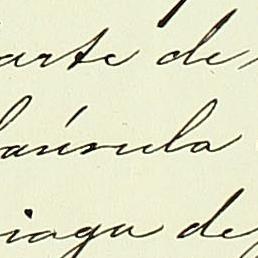 arte de
laúsula
iaga de